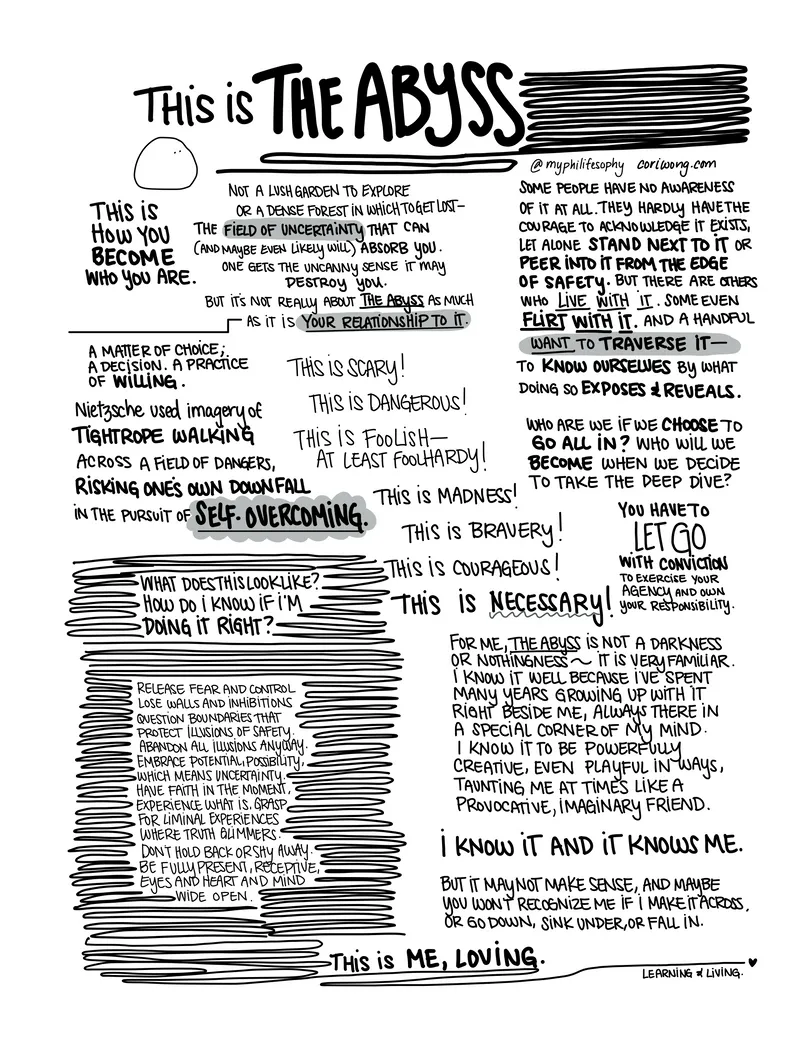 THIS IS THE ABYSS
@myphilifesophy coriwong.com
THIS IS
HOW YOU
BECOME
WHO YOU ARE.
NOT A LUSH GARDEN TO EXPLORE
OR A DENSE FOREST IN WHICH TO GET LOST—
THE FIELD OF UNCERTAINTY THAT CAN
(AND MAYBE EVEN LIKELY WILL) ABSORB YOU.
ONE GETS THE UNCANNY SENSE IT MAY
DESTROY YOU.
BUT IT'S NOT REALLY ABOUT THE ABYSS AS MUCH
AS IT IS YOUR RELATIONSHIP TO IT.
SOME PEOPLE HAVE NO AWARENESS
OF IT AT ALL. THEY HARDLY HAVE THE
COURAGE TO ACKNOWLEDGE IT EXISTS,
LET ALONE STAND NEXT TO IT OR
PEER INTO IT FROM THE EDGE
OF SAFETY. BUT THERE ARE OTHERS
WHO LIVE WITH IT. SOME EVEN
FLIRT WITH IT. AND A HANDFUL
WANT TO TRAVERSE IT—
TO KNOW OURSELVES BY WHAT
DOING SO EXPOSES & REVEALS.
A MATTER OF CHOICE;
A DECISION. A PRACTICE
OF WILLING.
Nietzsche used imagery of
TIGHTROPE WALKING
ACROSS A FIELD OF DANGERS,
RISKING ONE'S OWN DOWNFALL
IN THE PURSUIT OF SELF-OVERCOMING.
THIS IS SCARY!
THIS IS DANGEROUS!
THIS IS FOOLISH—
AT LEAST FOOLHARDY!
THIS IS MADNESS!
THIS IS BRAVERY!
THIS IS COURAGEOUS!
THIS IS NECESSARY!
WHO ARE WE IF WE CHOOSE TO
GO ALL IN? WHO WILL WE
BECOME WHEN WE DECIDE
TO TAKE THE DEEP DIVE?
YOU HAVE TO
LET GO
WITH CONVICTION
TO EXERCISE YOUR
AGENCY AND OWN
YOUR RESPONSIBILITY.
WHAT DOES THIS LOOK LIKE?
HOW DO I KNOW IF I'M
DOING IT RIGHT?
RELEASE FEAR AND CONTROL
LOSE WALLS AND INHIBITIONS
QUESTION BOUNDARIES THAT
PROTECT ILLUSIONS OF SAFETY.
ABANDON ALL ILLUSIONS ANYWAY.
EMBRACE POTENTIAL, POSSIBILITY,
WHICH MEANS UNCERTAINTY.
HAVE FAITH IN THE MOMENT,
EXPERIENCE WHAT IS. GRASP
FOR LIMINAL EXPERIENCES
WHERE TRUTH GLIMMERS.
DON'T HOLD BACK OR SHY AWAY.
BE FULLY PRESENT, RECEPTIVE,
EYES AND HEART AND MIND
WIDE OPEN.
FOR ME, THE ABYSS IS NOT A DARKNESS
OR NOTHINGNESS ~ IT IS VERY FAMILIAR.
I KNOW IT WELL BECAUSE I'VE SPENT
MANY YEARS GROWING UP WITH IT
RIGHT BESIDE ME, ALWAYS THERE IN
A SPECIAL CORNER OF MY MIND.
I KNOW IT TO BE POWERFULLY
CREATIVE, EVEN PLAYFUL IN WAYS,
TAUNTING ME AT TIMES LIKE A
PROVOCATIVE, IMAGINARY FRIEND.
I KNOW IT AND IT KNOWS ME.
BUT IT MAY NOT MAKE SENSE, AND MAYBE
YOU WON'T RECOGNIZE ME IF I MAKE IT ACROSS,
OR GO DOWN, SINK UNDER, OR FALL IN.
THIS IS ME, LOVING.
LEARNING & LIVING.